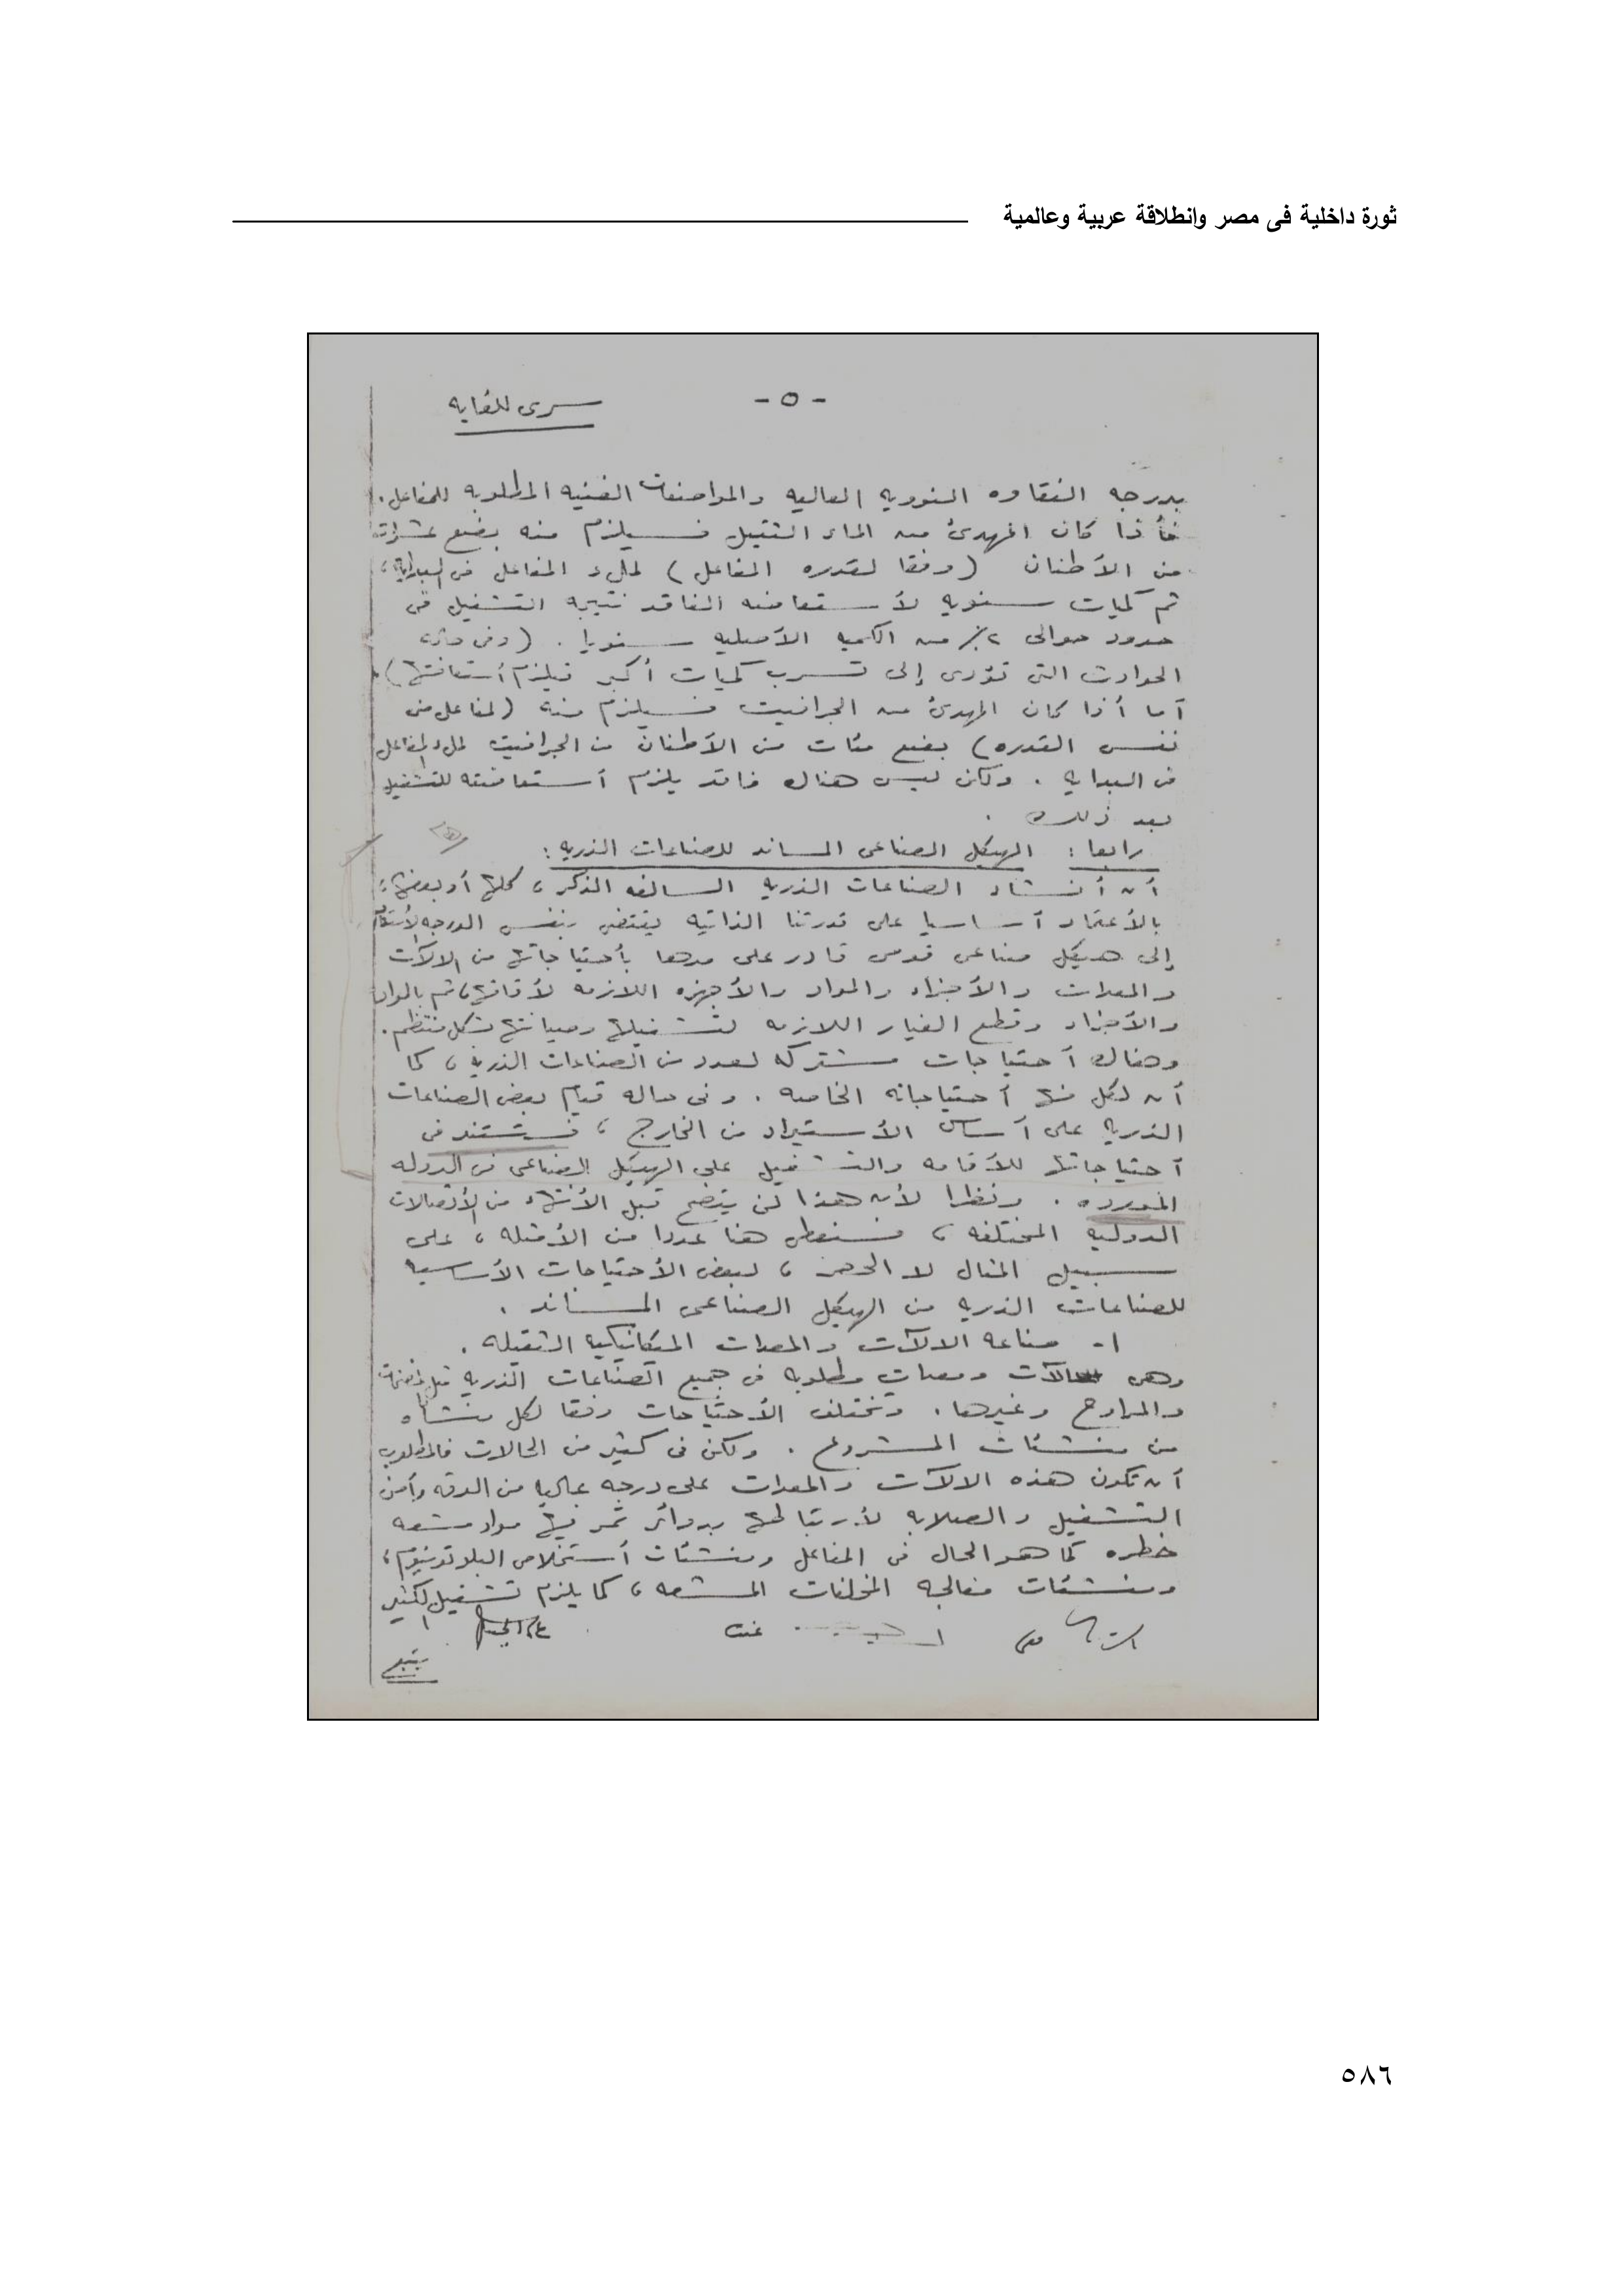 ثورة داخلية فى مصر وانطلاقة عربية وعالمية
- ٥ -
سرى للغايه
بدرجه النقاوه النوويه العاليه والمواصفات الفنيه المطلوبه للمفاعل.
فأذا كان المهدئ من الماء الثقيل فسيلزم منه بضع عشرات
من الأطنان (وفقا لقدره المفاعل) لملء المفاعل فى البدايه،
ثم كميات سنويه لأستعاضه الفاقد نتيجه التشغيل فى
حدود حوالى ٢٪ من الكميه الأصليه سنويا. (وفى حاله
الحوادث التى تؤدى إلى تسرب كميات أكبر فيلزم أستعاضتها)
أما أذا كان المهدئ من الجرافيت فسيلزم منه (لمفاعل من
نفس القدره) بضع مئات من الأطنان من الجرافيت لملء المفاعل
فى البدايه. ولكن ليس هناك فاقد يلزم أستعاضته للتشغيل
بعد ذلك.
رابعا: الهيكل الصناعى المساند للصناعات الذريه:
أن أنشاء الصناعات الذريه السالفه الذكر، كلها أو بعضها،
بالأعتماد أساسيا على قدرتنا الذاتيه يقتضى بنفس الدرجه الأستناد
إلى هيكل صناعى قومى قادر على مدها بأحتياجاتها من الالآت
والمعدات والأجزاء والمواد والأجهزه اللازمه لأقامتها، ثم بالمواد
والأجزاء وقطع الغيار اللازمه لتشغيلها وصيانتها بشكل منتظم.
وهناك أحتياجات مشتركه لعدد من الصناعات الذريه، كما
أن لكل منها أحتياجاته الخاصه. وفى حاله قيام بعض الصناعات
الذريه على أساس الأستيراد من الخارج، فستستند فى
أحتياجاتها للأقامه والتشغيل على الهيكل الصناعى فى الدوله
المورده. ونظرا لأن هذا لن يتضح قبل الأنتهاء من الأتصالات
الدوليه المختلفه، فسنعطى هنا عددا من الأمثله، على
سبيل المثال لا الحصر، لبعض الأحتياجات الأساسيه
للصناعات الذريه من الهيكل الصناعى المساند.
١- صناعه الالآت والمعدات الميكانيكيه الثقيله.
وهى آلات ومعدات مطلوبه فى جميع الصناعات الذريه مثل المضخات
والمراوح وغيرها. وتختلف الأحتياجات وفقا لكل منشأه
من منشئات المشروع. ولكن فى كثير من الحالات فالمطلوب
أن تكون هذه الالآت والمعدات على درجه عاليه من الدقه وأمن
التشغيل والصلابه لأرتباطها بدوائر تمر فيها مواد مشعه
خطره كما هو الحال فى المفاعل ومنشئات أستخلاص البلوتونيوم،
ومنشئات معالجه المخلفات المشعه، كما يلزم تشغيل الكثير
يتبع
٥٨٦